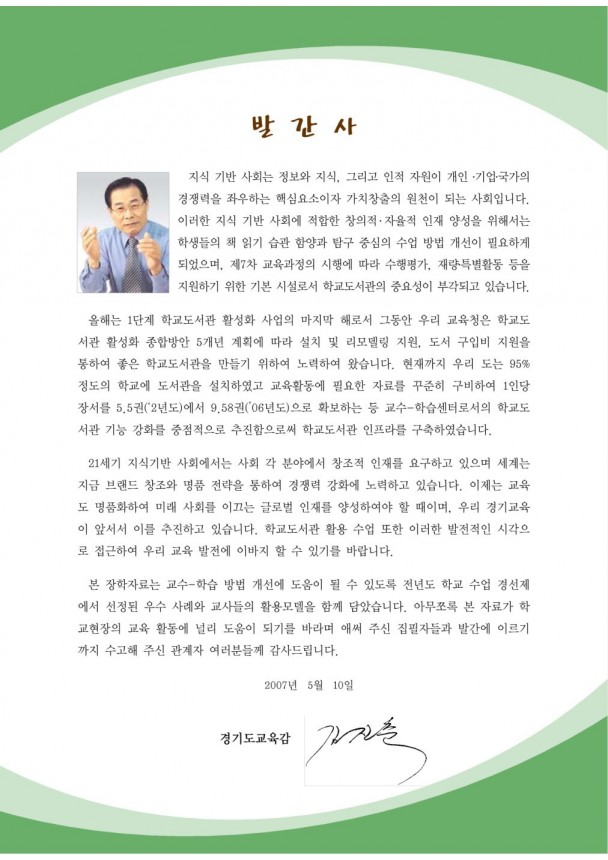 발 간 사
지식 기반 사회는 정보와 지식, 그리고 인적 자원이 개인·기업·국가의
경쟁력을 좌우하는 핵심요소이자 가치창출의 원천이 되는 사회입니다.
이러한 지식 기반 사회에 적합한 창의적·자율적 인재 양성을 위해서는
학생들의 책 읽기 습관 함양과 탐구 중심의 수업 방법 개선이 필요하게
되었으며, 제7차 교육과정의 시행에 따라 수행평가, 재량특별활동 등을
지원하기 위한 기본 시설로서 학교도서관의 중요성이 부각되고 있습니다.
올해는 1단계 학교도서관 활성화 사업의 마지막 해로서 그동안 우리 교육청은 학교도
서관 활성화 종합방안 5개년 계획에 따라 설치 및 리모델링 지원, 도서 구입비 지원을
통하여 좋은 학교도서관을 만들기 위하여 노력하여 왔습니다. 현재까지 우리 도는 95%
정도의 학교에 도서관을 설치하였고 교육활동에 필요한 자료를 꾸준히 구비하여 1인당
장서를 5.5권('2년도)에서 9.58권('06년도)으로 확보하는 등 교수-학습센터로서의 학교도
서관 기능 강화를 중점적으로 추진함으로써 학교도서관 인프라를 구축하였습니다.
21세기 지식기반 사회에서는 사회 각 분야에서 창조적 인재를 요구하고 있으며 세계는
지금 브랜드 창조와 명품 전략을 통하여 경쟁력 강화에 노력하고 있습니다. 이제는 교육
도 명품화하여 미래 사회를 이끄는 글로벌 인재를 양성하여야 할 때이며, 우리 경기교육
이 앞서서 이를 추진하고 있습니다. 학교도서관 활용 수업 또한 이러한 발전적인 시각으
로 접근하여 우리 교육 발전에 이바지 할 수 있기를 바랍니다.
본 장학자료는 교수-학습 방법 개선에 도움이 될 수 있도록 전년도 학교 수업 경선제
에서 선정된 우수 사례와 교사들의 활용모델을 함께 담았습니다. 아무쪼록 본 자료가 학
교현장의 교육 활동에 널리 도움이 되기를 바라며 애써 주신 집필자들과 발간에 이르기
까지 수고해 주신 관계자 여러분들께 감사드립니다.
2007년 5월 10일
경기도교육감 김진춘